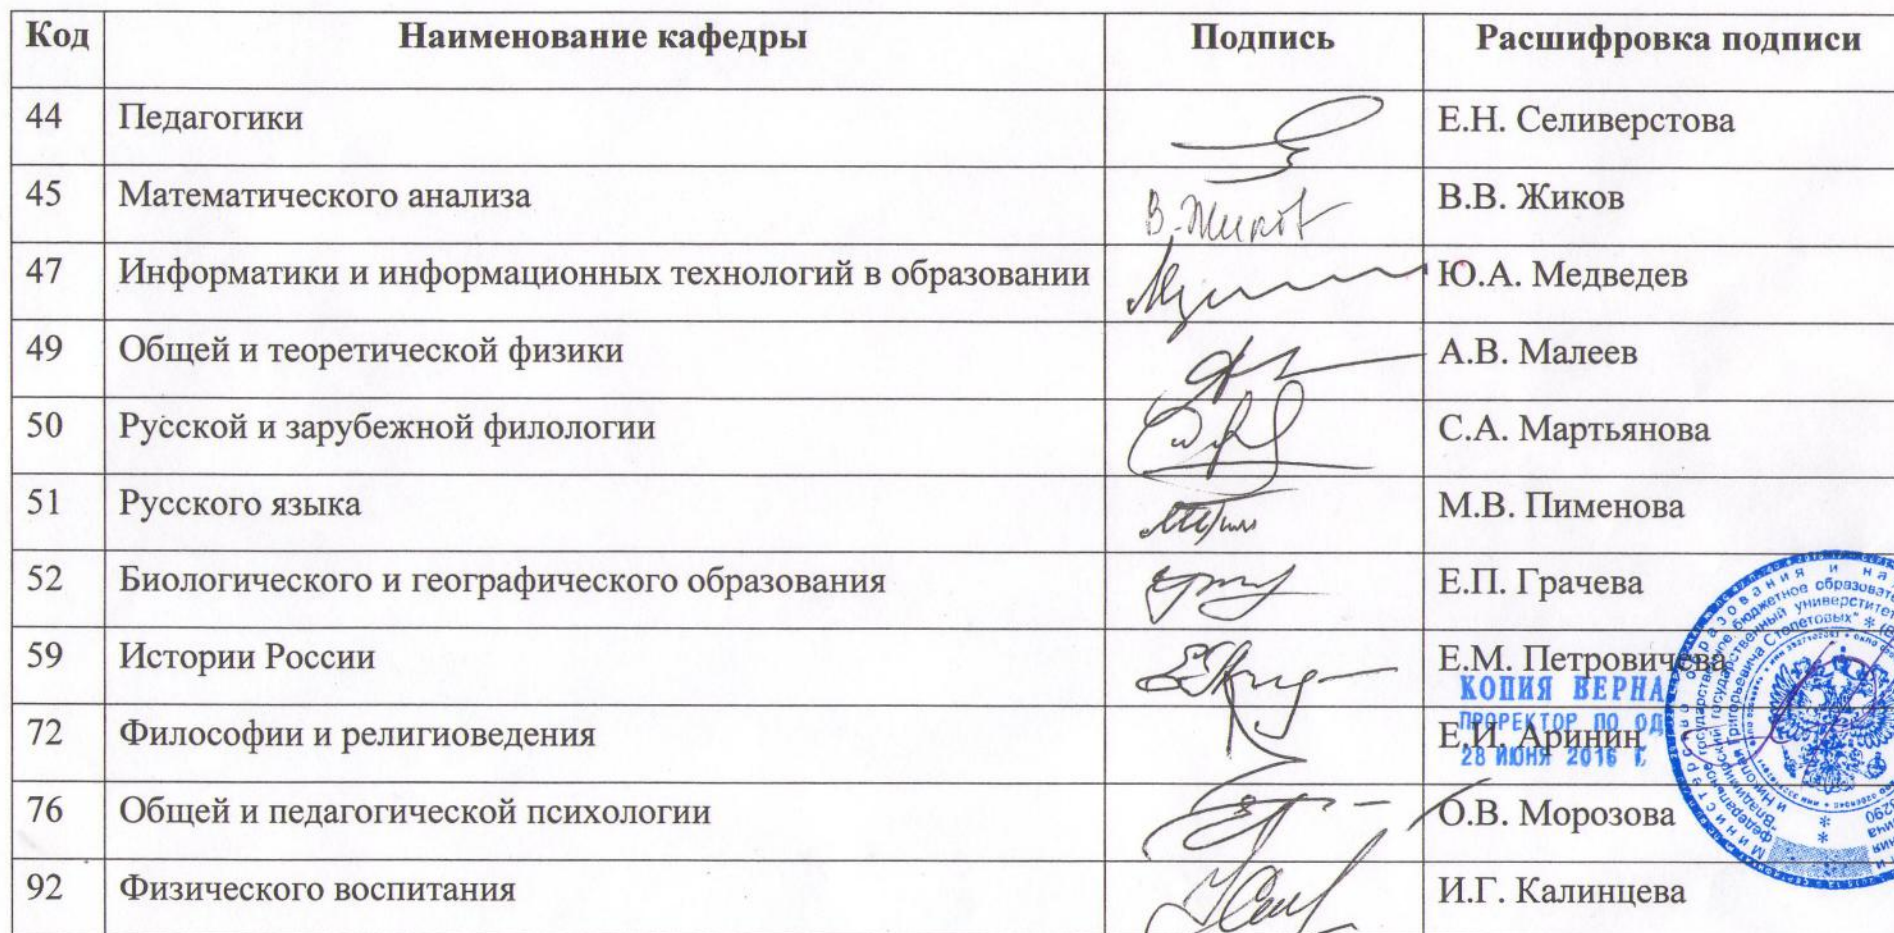 Код Наименование кафедры Подпись Расшифровка подписи
44 Педагогики Е.Н. Селиверстова
45 Математического анализа В. Жиков В.В. Жиков
47 Информатики и информационных технологий в образовании Ю.А. Медведев
49 Общей и теоретической физики А.В. Малеев
50 Русской и зарубежной филологии С.А. Мартьянова
51 Русского языка М.В. Пименова
52 Биологического и географического образования Е.П. Грачева
59 Истории России Е.М. Петровичева
КОПИЯ ВЕРНА
ПРОРЕКТОР ПО ОД
72 Философии и религиоведения Е.И. Аринин
28 ИЮНЯ 2016 Г.
76 Общей и педагогической психологии О.В. Морозова
92 Физического воспитания И.Г. Калинцева